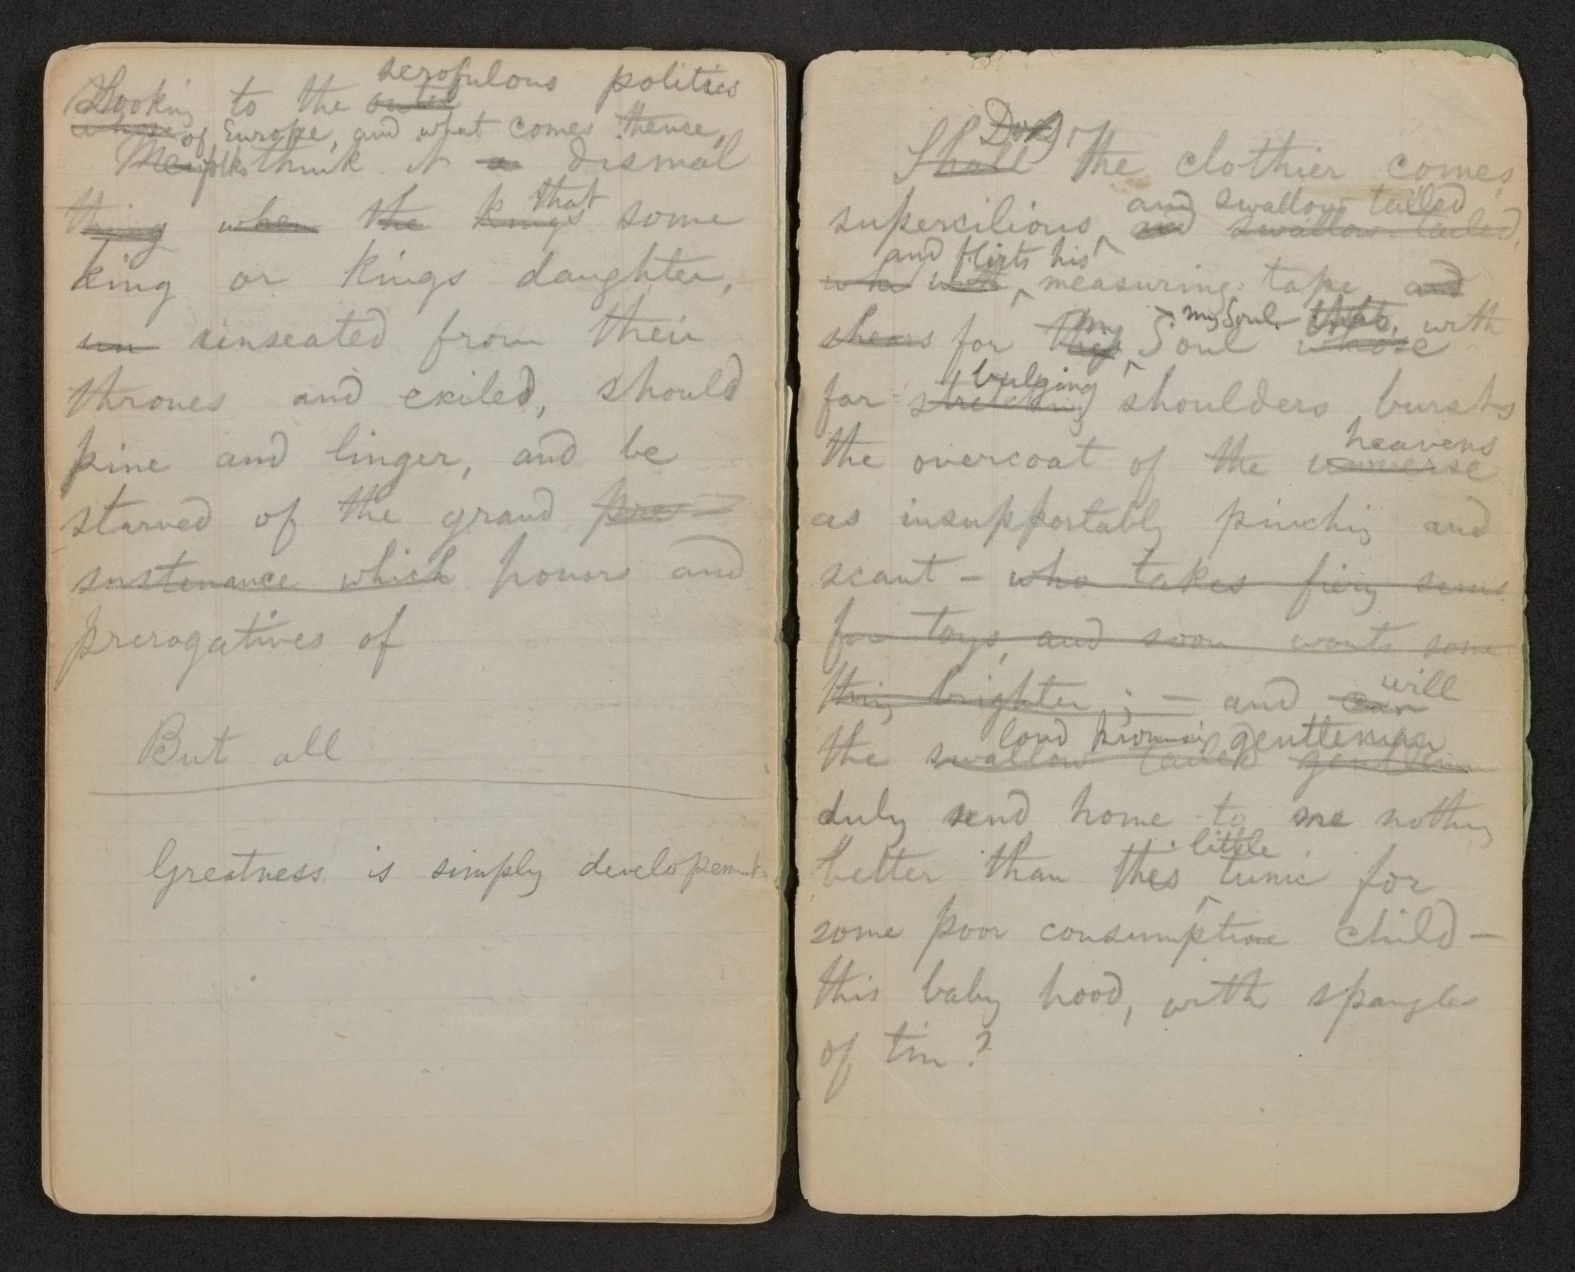 scrofulous politics
Looking to the
of Europe, and what comes thence,
Men folks think it a dismal
thing when the kings that some
king or king's daughter,
un unseated from their
thrones and exiled, should
pine and linger, and be
starved of the grand pre-
sustenance which honors and
prerogatives of
But all
Greatness is simply developement.
Does
Shall the clothier comes
and swallow tailed
supercilious, and swallow-tailed,
and flirts his
who with measuring tape and
my my Soul with
shears for Soul whose
bulging
far-stretching shoulders bursts
heavens
the overcoat of the universe
as insupportably pinching and
scant – who takes fiery suns
for toys, and soon wants some
thing brighter; – and can will
loud promising gentleman
the swallow tailed gentleman
duly send home to me nothing
little
better than this tunic for
some poor consumptive child –
this baby hood, with spangles
of tin?